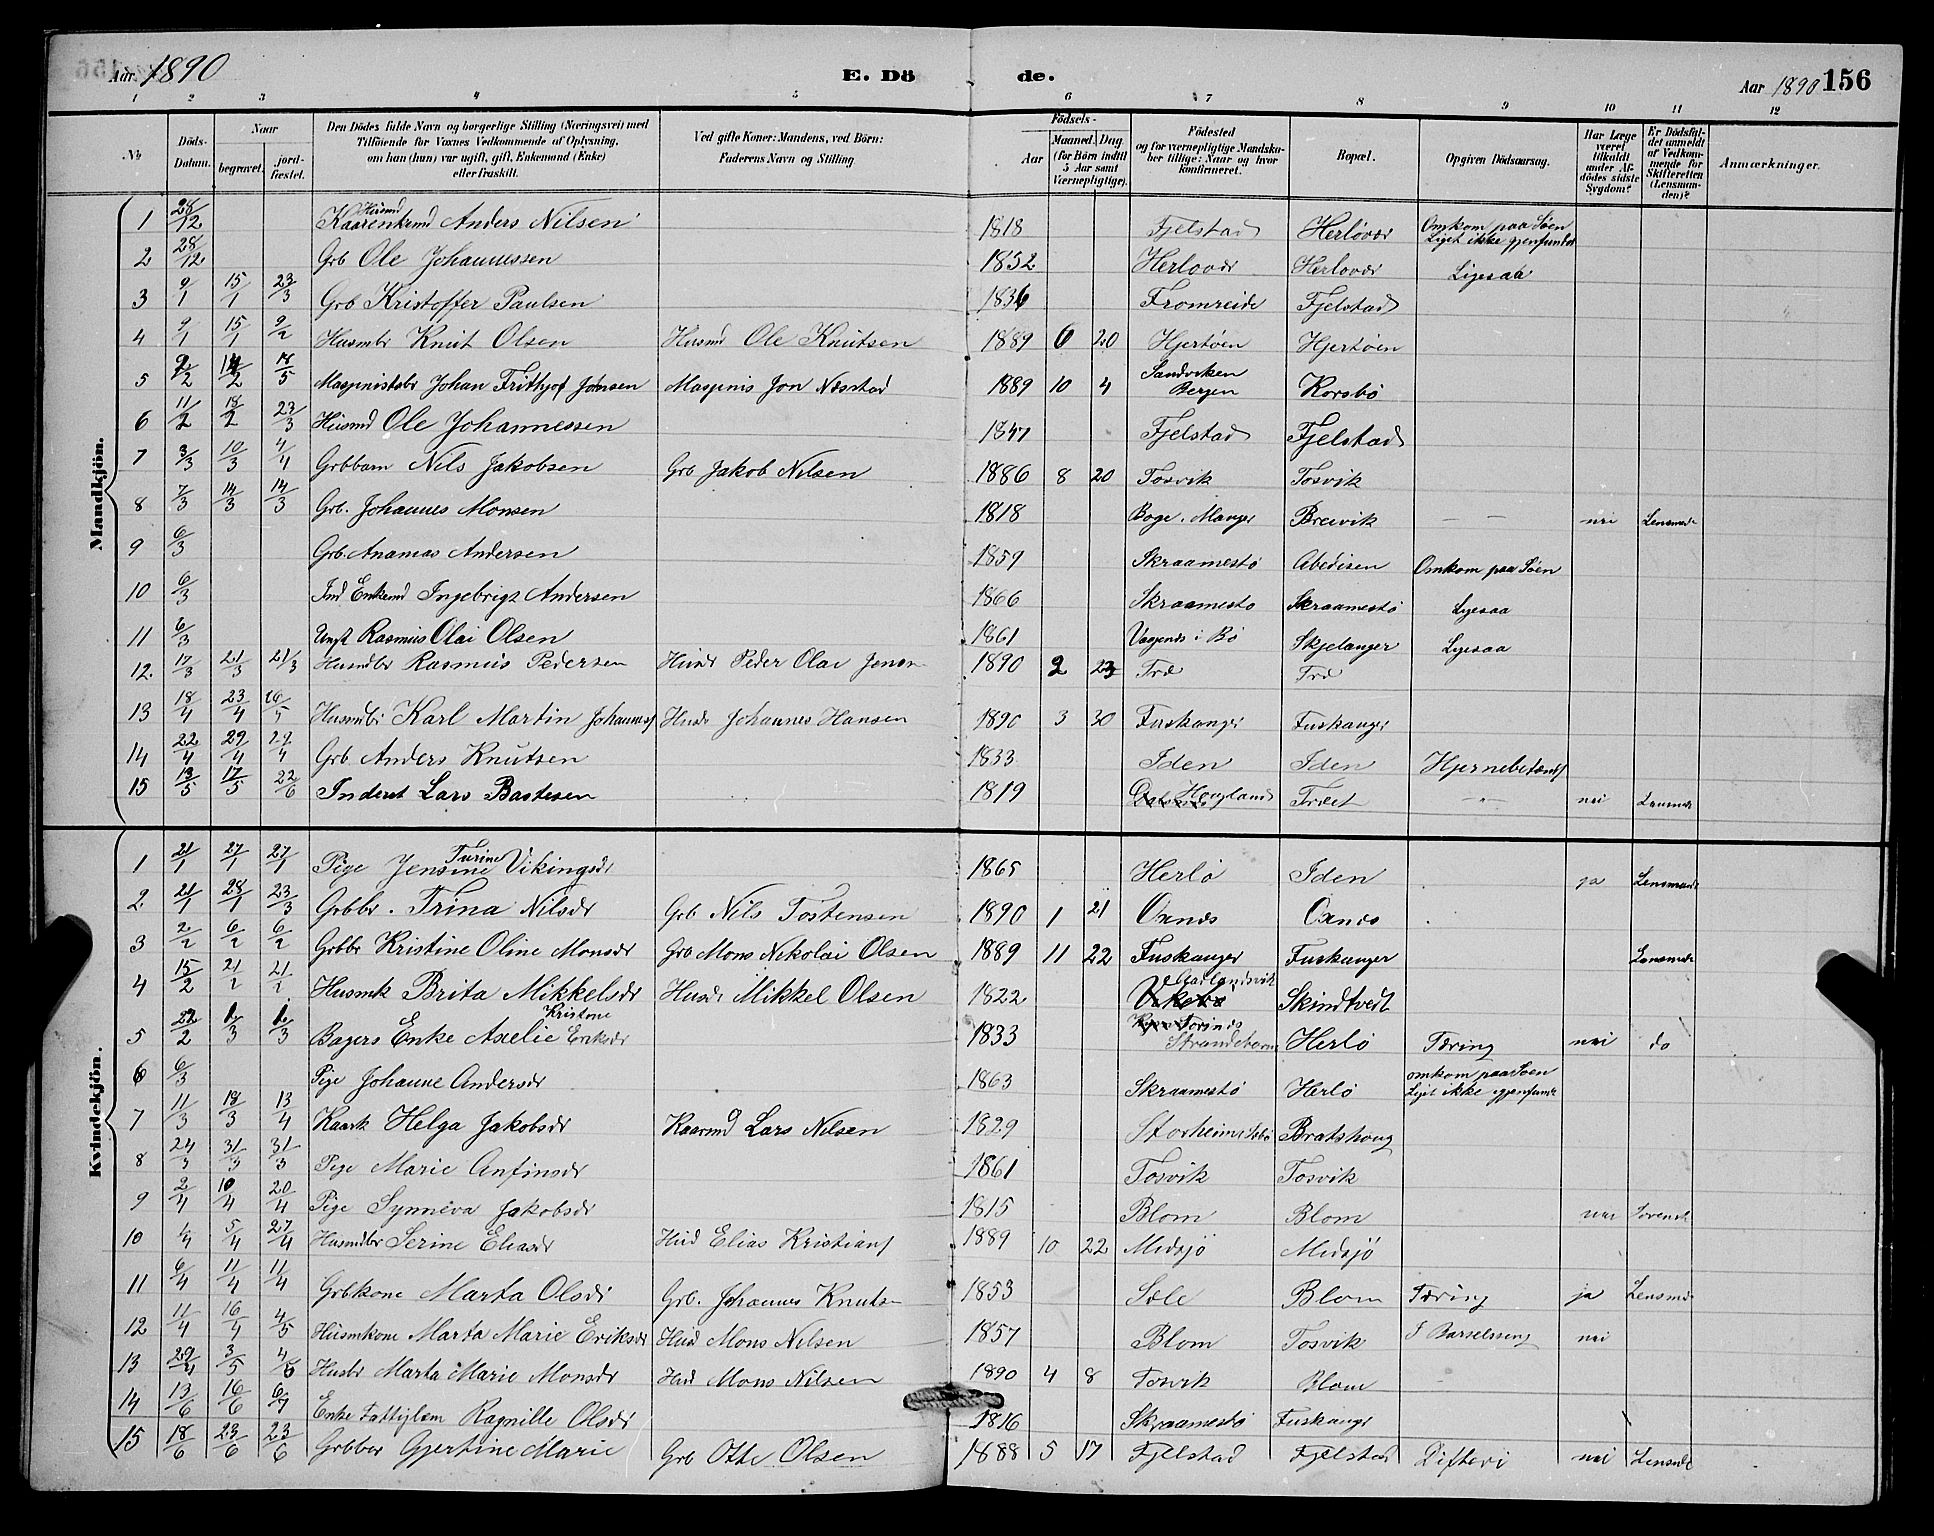 Aar 1890 E. Dö de. Aar 1890 156
1 2 3 4 5 6 7 8 9 10 11 12
No Döds-Datum. Naar begravet. jord-fæstet. Den Dödes fulde Navn og borgerlige Stilling (Næringsvei) med Tilföiende for Voxnes Vedkommende af Oplysning, om han (hun) var ugift, gift, Enkemand (Enke) eller fraskilt. Ved gifte Koner: Mandens, ved Börn: Faderens Navn og Stilling. Födsels- Aar Maaned. Dag (for Börn indtil 5 Aar samt Værnepligtige). Födested og for værnepligtige Mandska-ber tillige: Naar og hvor konfirmeret. Bopæl. Opgiven Dödsaarsag. Har Læge været tilkaldt under Af-dödes sidste Sygdom? Er Dödsfal-det anmeldt af Vedkom-mende for Skifteretten (Lensman-den)? Anmærkninger.
Mandkjön.
1 28/12 Kaarenkemd Anders Nilsen 1818 Fjelstad Herlövær Omkom paa Söen Liget ikke gjenfundet
2 28/12 Grb Ole Johannessen 1852 Herlovær Herlovær Ligesaa
3 9/1 15/1 23/3 Grb Kristoffer Paulsen 1836 Fromreide Fjelstad
4 9/1 15/1 9/2 Husmbr Knut Olsen Husmd Ole Knutsen 1889 6 20 Hjertöen Hjertöen
5 9/2 14/2 18/5 Maspinistsbr Johan Frithjof Jonsen Maspinis Jon Næsstad 1889 10 4 Sandviken Bergen Korsbö
6 11/2 18/2 23/3 Husmd Ole Johannessen 1847 Fjelstad Fjelstad
7 3/3 10/3 4/4 Grbbarn Nils Jakobsen Grb Jakob Nilsen 1886 8 20 Tosvik Tosvik
8 7/3 14/3 14/3 Grb. Johannes Monsen 1818 Boge. Manger Breivik — — nei Lensmd
9 6/3 Grb. Ananias Andersen 1859 Skraamestö Abedisen Omkom paa Söen
10 6/3 Ind Enkemd Ingebrigt Andersen 1866 Skraamesto Skraamestö Ligesaa
11 6/3 Ungk Rasmus Olai Olsen 1861 Vaagenes i Bö Skjelanger Ligesaa
12. 17/3 21/3 21/3 Husmdbr Rasmus Pedersen Husmd Peder Olai Jensn 1890 2 23 Træ Træ
13 18/4 23/4 26/5 Husmdbr Karl Martin Johannes Husd Johannes Hansen 1890 3 30 Fuskanger Fuskanger
14 22/4 29/4 29/4 Grb. Anders Knutsen 1833 Iden Iden Hjernebetænd
15 13/5 17/5 22/6 Inderst Lars Bastesen 1819 Hougland Træet — " — nei Lensmd
Kvindekjön.
1 21/1 27/1 27/1 Pige Jensine Turine Vikingsdr 1865 Herlö Iden ja Lensmand
2 21/1 28/1 23/3 Grbbr. Trina Nilsdr Grb Nils Tostensen 1890 1 21 Oxnes Oxnes
3 2/2 6/2 6/2 Grbbr Kristine Oline Monsdr Grb Mons Nikolai Olsen 1889 11 22 Fuskanger Fuskanger Lensmd
4 15/2 21/2 21/2 Husmk Brita Mikkelsdr Husd Mikkel Olsen 1822 Skindtvedt
5 22/2 1/3 1/3 Bagers Enke Axelie Kristine Eriksdr 1833 Strandebarm Herlö Tæring nei do
6 6/3 Pige Johanne Andersdr 1863 Skraamestö Herlö omkom paa Söen Liget ikke gjenfundet
7 11/3 18/3 13/4 Kaark Helga Jakobsdr Kaarmd Lars Nilsen 1829 Storheim Bratshoug
8 24/3 31/3 31/3 Pige Marie Anfinsdr 1861 Tosvik Tosvik
9 2/4 10/4 20/4 Pige Synneva Jakobsdr 1815 Blom Blom nei
10 1/4 5/4 27/4 Husmdbr Serine Eliasdr Husd Elias Kristians 1889 10 22 Midsjö Midsjö
11 6/4 11/4 11/4 Grbkone Marta Olsdr Grb. Johannes Knutsn 1853 Sæle Blom Tæring ja Lensmd
12 11/4 16/4 4/5 Husmkone Marta Marie Eriksdr Husd Mons Nilsen 1857 Blom Tosvik I Barselseng nei
13 29/4 3/5 4/5 Husbr Marta Marie Monsdr Husd Mons Nilsen 1890 4 8 Tosvik Blom —
14 13/6 16/6 6/7 Enke Fattiglem Ragnille Olsdr 1816 Skraamestö Fuskanger
15 18/6 23/6 23/6 Grbbar Gjertine Marie Grb Otte Olsen 1888 5 17 Fjelstad Fjelstad Difteri nei Lensmd